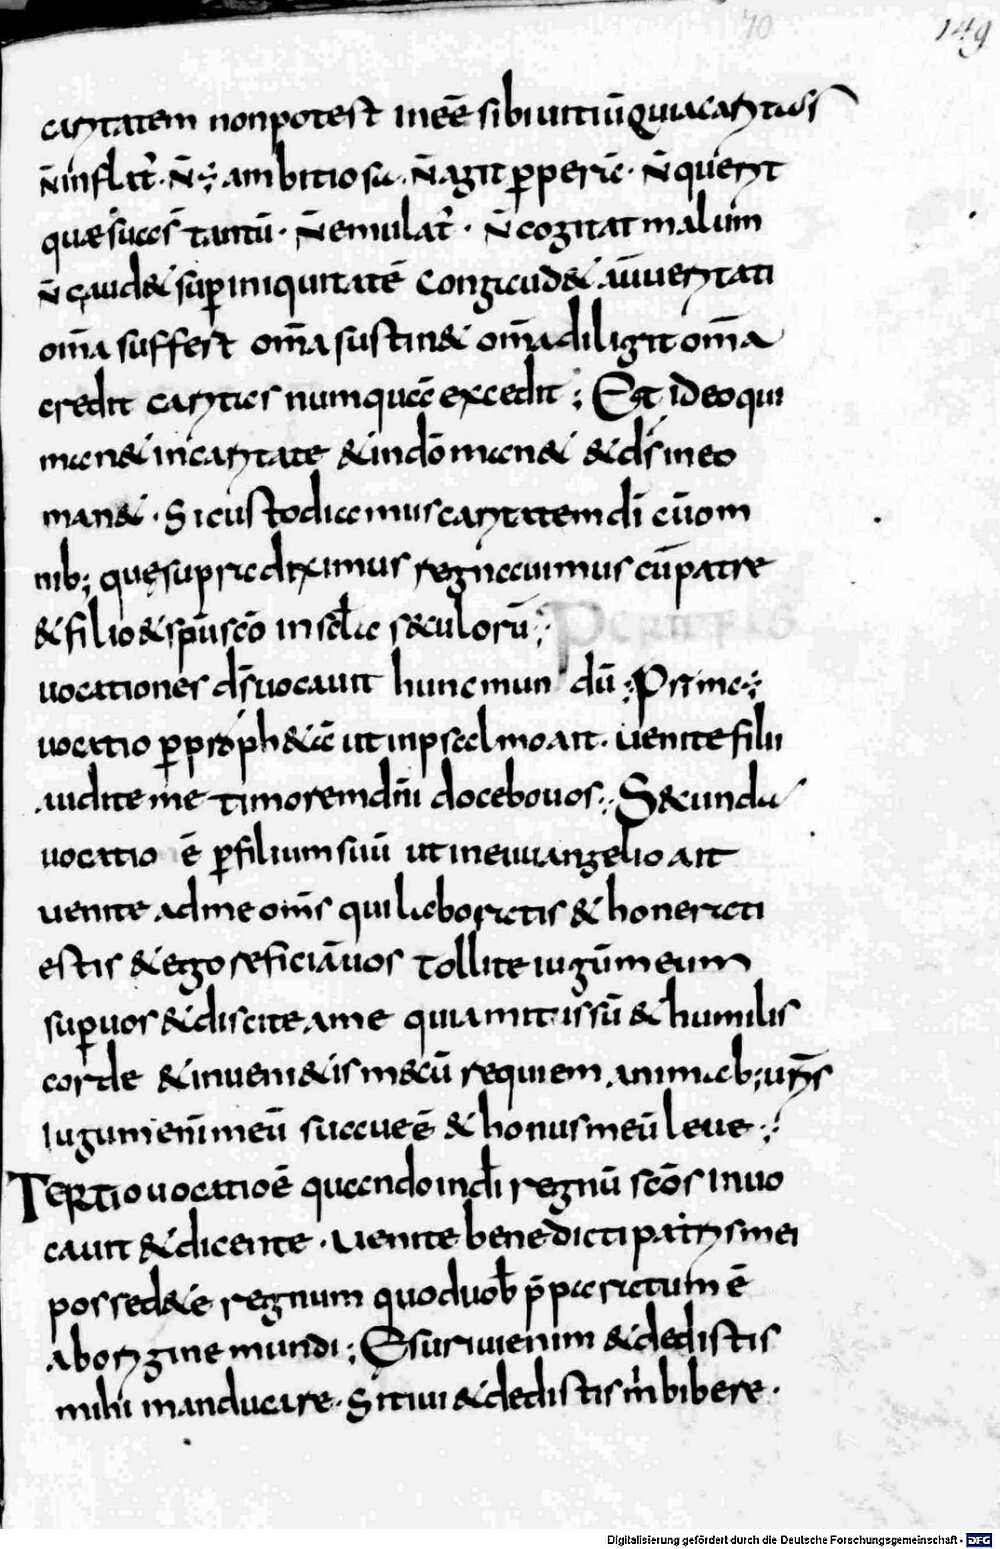 70
149
caritatem non potest ineē sibi uitiū Quia caritas
n̄ inflat᷒. n̄ ÷ ambitiosa. n̄ agit ꝑperā. n̄ querit
quæ suā s̄ tantū. n̄ emulat᷒. n̄ cogitat malum
n̄ gaud& suꝑ iniquitatē congaud& aūueritati
om̄a suffert om̄a sustin& om̄a diligit om̄a
credit caritas numquā excedit; Et ideo qui
man& in caritate & in dō man& & dś in eo
man&. Si custodiamus caritatem dī cū om
nib; quę supra diximus regnauimus cū patre
& filio & sp̄u scō in sc̄la sæculorū;
uocationes dś uocauit hunc mundū; Prima
uocatio ꝑ proph&ā ut in psalmo ait. uenite filii
audite me timorem dn̄i docebo uos; Secunda
uocatio ē ꝑ filium suū ut in euuangelio ait
uenite ad me om̄s qui laboratis & honerati
estis & ego reficiā uos tollite iugū meum
suꝑ uos & discite a me quia mitis sū & humilis
corde & inueni&is m&cū requiem animab; ur̄is
iugum enī meū suaue ē & honus meū leue;
Tertio uocatio ē quando in dī regnū scōs inuo
cauit & dicente. uenite benedicti patris mei
possed&e regnum quod uob p̄paratum ē
ab origine mundi; Esuriui enim & dedistis
mihi manducare. Sitiui & dedistis m̄ bibere.
Digitalisierung gefördert durch die Deutsche Forschungsgemeinschaft - DFG